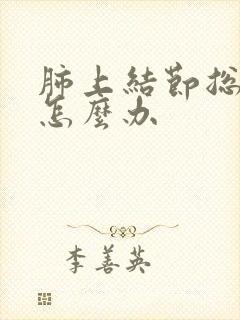 肺上結節总
怎麼办
李善英